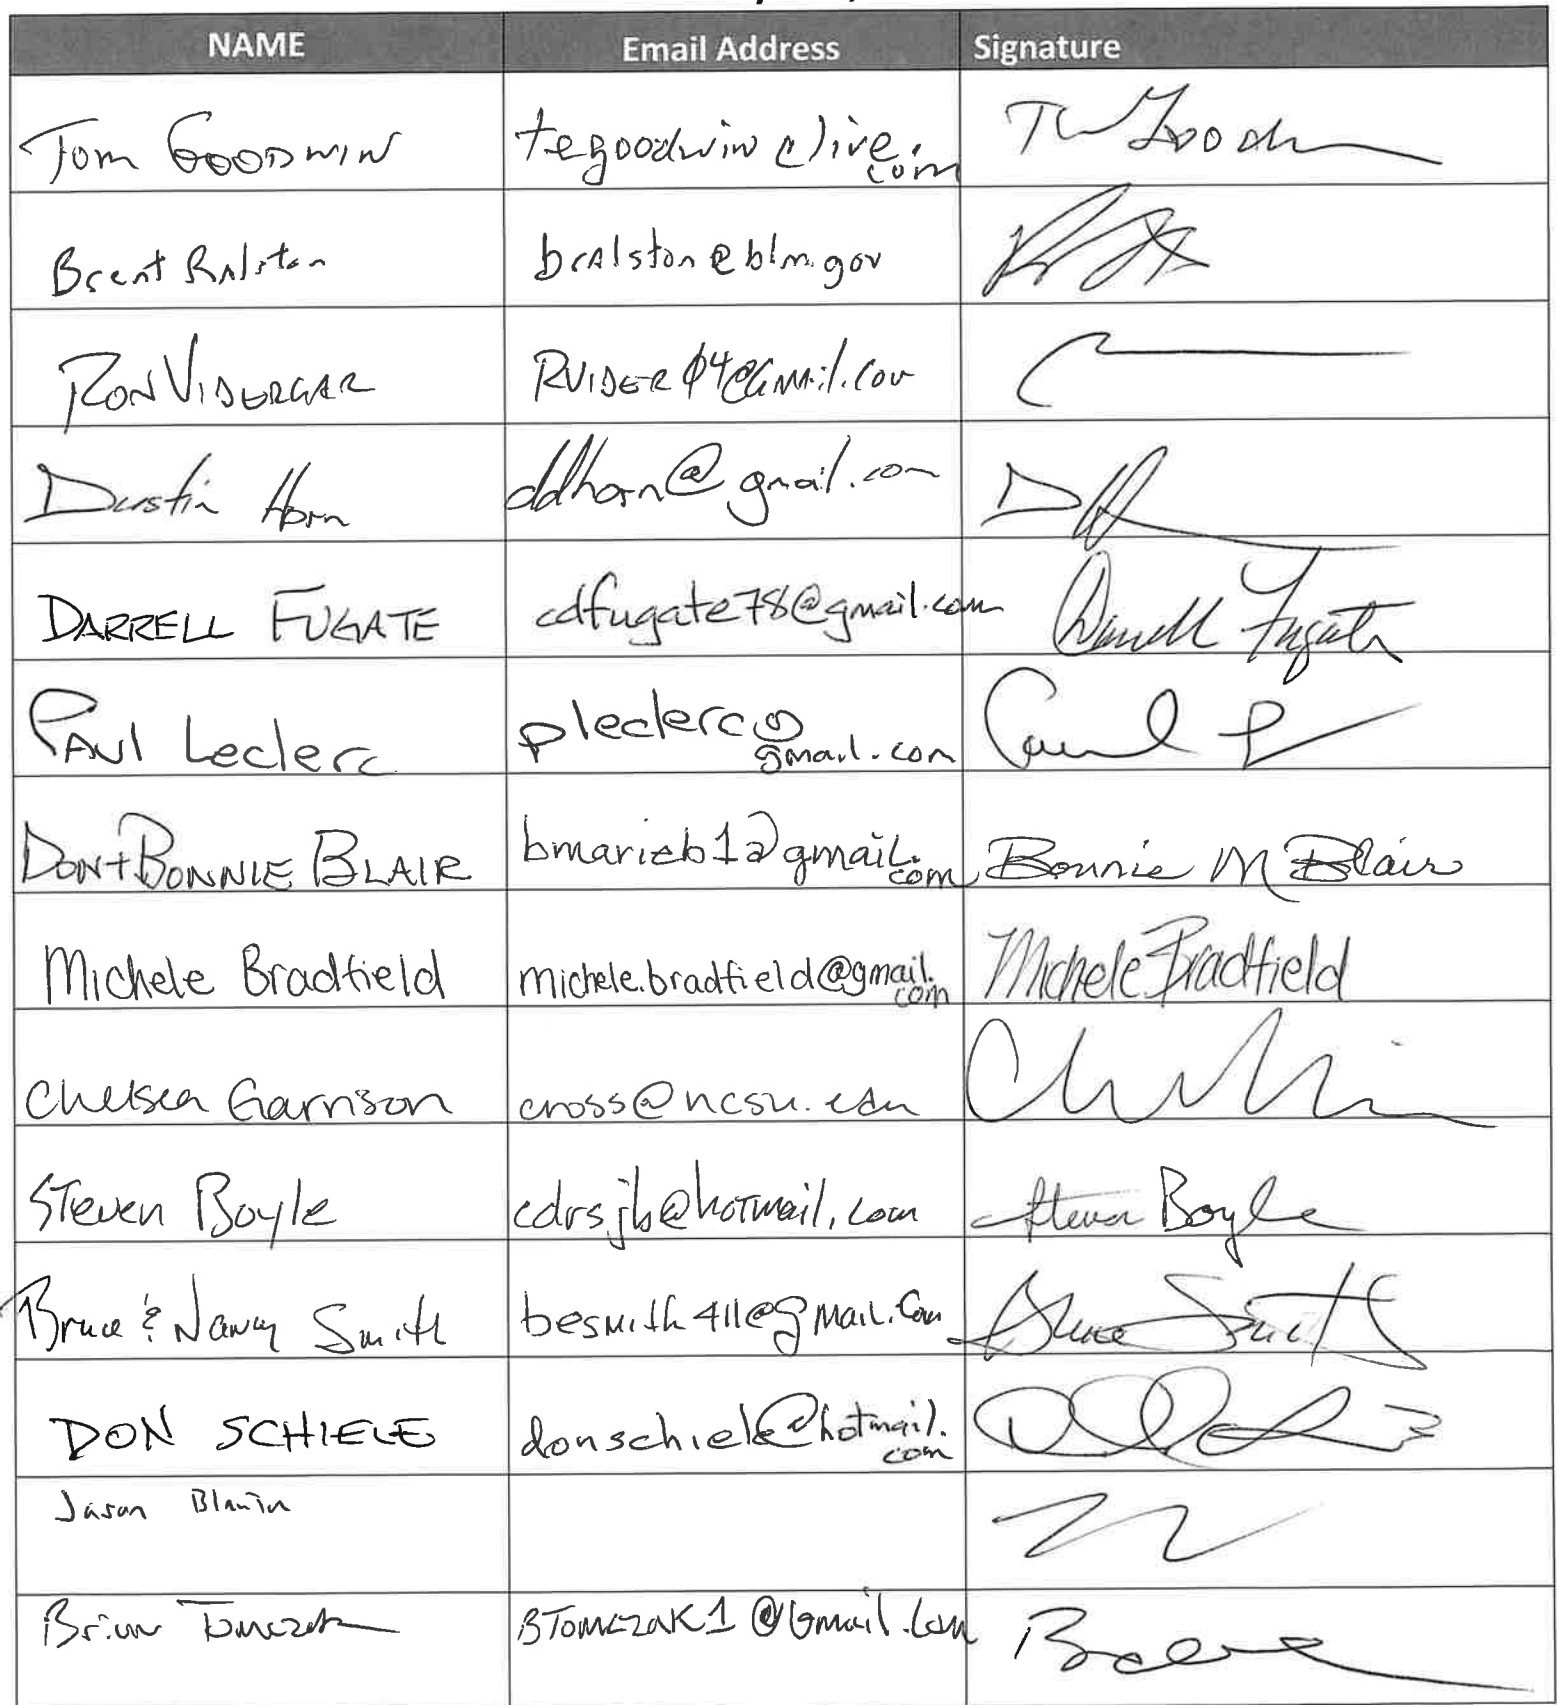 NAME Email Address Signature
Tom GOODWIN tegoodwin@live.com TW Good
Brent Ralston bralston@blm.gov
RON VIDERGAR RVIDER04@Gmail.com
Dustin Horn ddhorn@gmail.com DH
DARRELL FUGATE cdfugate78@gmail.com Darrell Fugate
PAUL Leclerc pleclerc@gmail.com Paul L
DON + BONNIE BLAIR bmarieb1@gmail.com Bonnie M Blair
Michele Bradfield michele.bradfield@gmail.com Michele Bradfield
Chelsea Garrison cross@ncsu.edu
Steven Boyle cdrsjb@hotmail.com Steven Boyle
Bruce & Nancy Smith besmith411@gmail.com Bruce Smith
DON SCHIELE donschiele@hotmail.com
Jason
Brian Tomczak BTOMCZAK1@Gmail.com